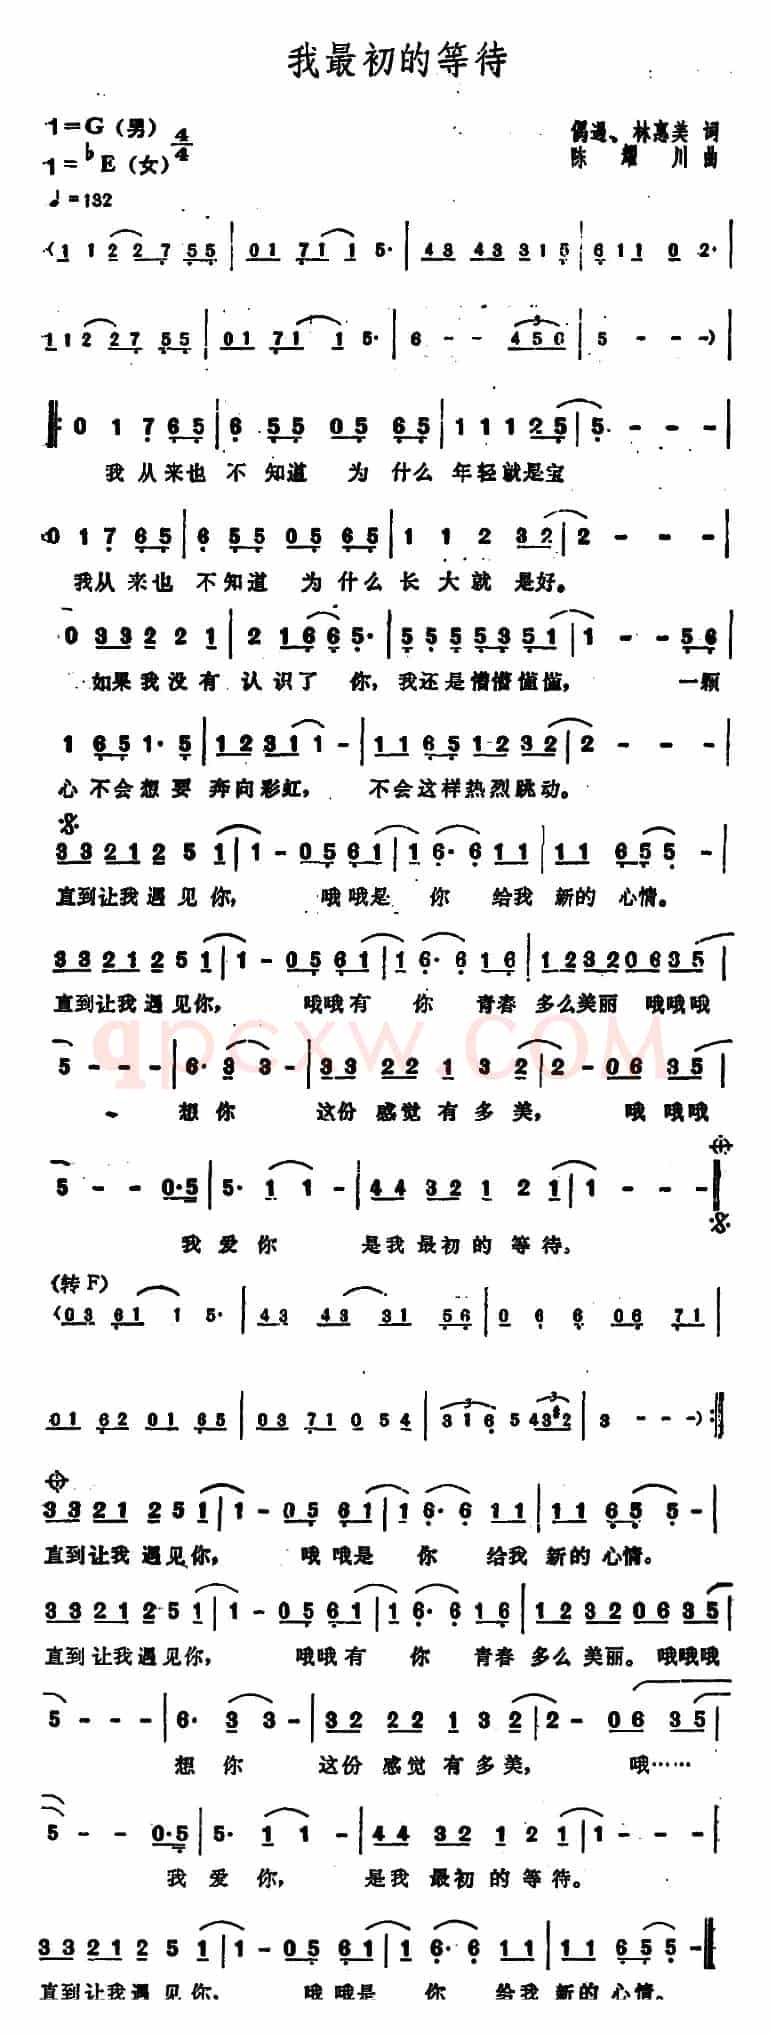 我最初的等待
1=G（男）4/4
1=♭E（女）
偶遇、林惠美 词
陈耀川 曲
♩=132
(1 1 2 2 7 5 5 | 0 1 7 1 1 5· | 4 3 4 3 3 1 5 | 6 1 1 0 2· |
1 1 2 2 7 5 5 | 0 1 7 1 1 5· | 6 - - 4 5 0 | 5 - - -)
‖: 0 1 7 6 5 | 6 5 5 0 5 6 5 | 1 1 1 2 5 | 5 - - - |
我从来也不知道 为什么年轻就是宝
0 1 7 6 5 | 6 5 5 0 5 6 5 | 1 1 2 3 2 | 2 - - - |
我从来也不知道 为什么长大就是好。
0 3 3 2 2 1 | 2 1 6 6 5· | 5 5 5 5 3 5 1 | 1 - - 5 6
如果我没有认识了你，我还是懵懵懂懂， 一颗
1 6 5 1· 5 | 1 2 3 1 1 - | 1 1 6 5 1 2 3 2 | 2 - - - |
心不会想要奔向彩虹， 不会这样热烈跳动。
3 3 2 1 2 5 1 | 1 - 0 5 6 1 | 1 6· 6 1 1 | 1 1 6 5 5 - |
直到让我遇见你， 哦哦是 你 给我新的心情。
3 3 2 1 2 5 1 | 1 - 0 5 6 1 | 1 6· 6 1 6 | 1 2 3 2 0 6 3 5 |
直到让我遇见你， 哦哦有 你 青春多么美丽 哦哦哦
qpcxw.COM
5 - - - | 6· 3 3 - | 3 3 2 2 1 3 2 | 2 - 0 6 3 5 |
想你 这份感觉有多美， 哦哦哦
5 - - 0·5 | 5· 1 1 - | 4 4 3 2 1 2 1 | 1 - - - ‖
我爱你 是我最初的等待。
(转F)
(0 3 6 1 1 5· | 4 3 4 3 3 1 5 6 | 0 6 6 0 6 7 1 |
0 1 6 2 0 1 6 5 | 0 3 7 1 0 5 4 | 3 1 6 5 4 3 #2 | 3 - - -) :‖
3 3 2 1 2 5 1 | 1 - 0 5 6 1 | 1 6· 6 1 1 | 1 1 6 5 5 - |
直到让我遇见你， 哦哦是 你 给我新的心情。
3 3 2 1 2 5 1 | 1 - 0 5 6 1 | 1 6· 6 1 6 | 1 2 3 2 0 6 3 5 |
直到让我遇见你， 哦哦有 你 青春多么美丽。哦哦哦
5 - - - | 6· 3 3 - | 3 2 2 2 1 3 2 | 2 - 0 6 3 5 |
想你 这份感觉有多美， 哦……
5 - - 0·5 | 5· 1 1 - | 4 4 3 2 1 2 1 | 1 - - - |
我爱你， 是我最初的等待。
3 3 2 1 2 5 1 | 1 - 0 5 6 1 | 1 6· 6 1 1 | 1 1 6 5 5 - |
直到让我遇见你， 哦哦是 你 给我新的心情。